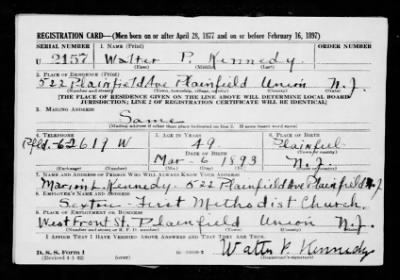 REGISTRATION CARD—(Men born on or after April 28, 1877 and on or before February 16, 1897)
SERIAL NUMBER 1. NAME (Print) ORDER NUMBER
U 2157 Walter P. Kennedy
(First) (Middle) (Last)
2. PLACE OF RESIDENCE (Print)
522 Plainfield Ave Plainfield Union N.J.
(Number and street) (Town, township, village, or city) (County) (State)
[THE PLACE OF RESIDENCE GIVEN ON THE LINE ABOVE WILL DETERMINE LOCAL BOARD
JURISDICTION; LINE 2 OF REGISTRATION CERTIFICATE WILL BE IDENTICAL]
3. MAILING ADDRESS
Same
(Mailing address if other than place indicated on line 2. If same insert word same)
4. TELEPHONE 5. AGE IN YEARS 6. PLACE OF BIRTH
Plfd. 6-2619 W 49 Plainfield
DATE OF BIRTH
Mar 6 1893 N.J.
(Exchange) (Number) (Mo.) (Day) (Yr.) (State or country)
7. NAME AND ADDRESS OF PERSON WHO WILL ALWAYS KNOW YOUR ADDRESS
Marion L. Kennedy. 522 Plainfield Ave Plainfield N.J.
8. EMPLOYER'S NAME AND ADDRESS
Sexton - First Methodist Church.
9. PLACE OF EMPLOYMENT OR BUSINESS
West Front St. Plainfield Union N.J.
(Number and street or R. F. D. number) (Town) (County) (State)
I AFFIRM THAT I HAVE VERIFIED ABOVE ANSWERS AND THAT THEY ARE TRUE.
D. S. S. Form 1
Walter P. Kennedy